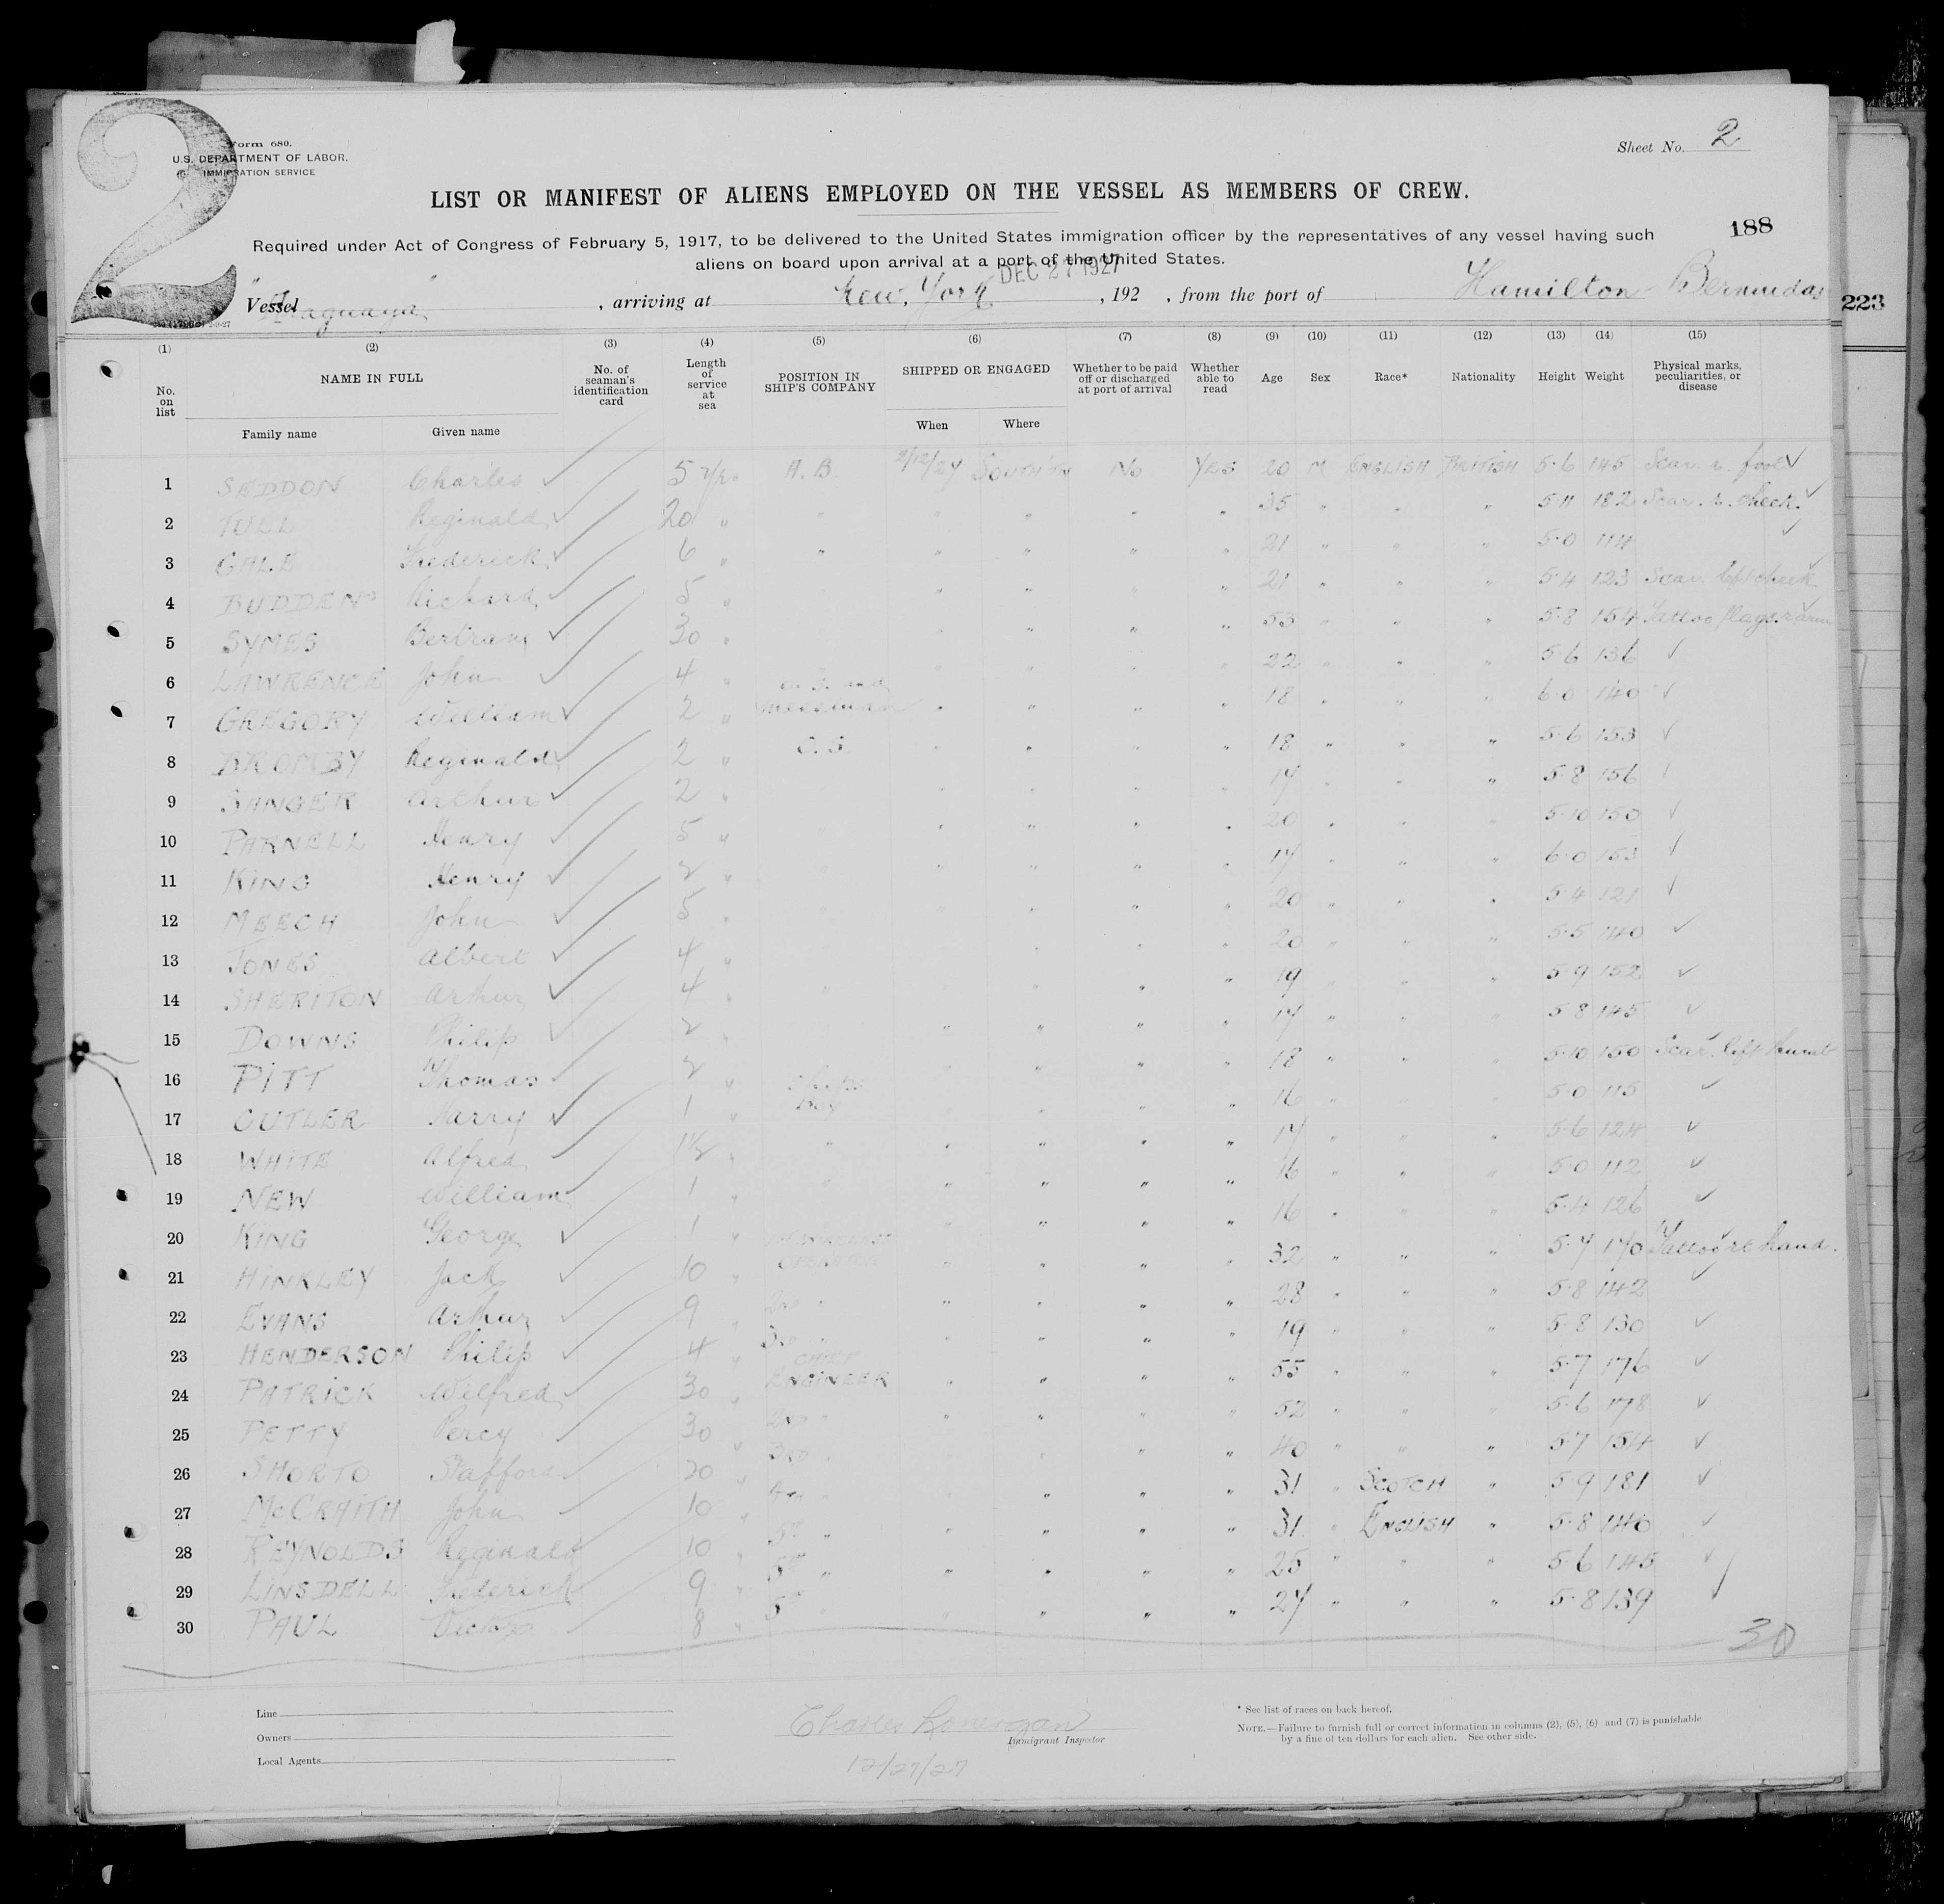 2
Form 680.
U.S. DEPARTMENT OF LABOR.
IMMIGRATION SERVICE
Sheet No. 2
LIST OR MANIFEST OF ALIENS EMPLOYED ON THE VESSEL AS MEMBERS OF CREW.
188
Required under Act of Congress of February 5, 1917, to be delivered to the United States immigration officer by the representatives of any vessel having such
aliens on board upon arrival at a port of the United States.
DEC 27 1927
Vessel "Araguaya" , arriving at New York , 192 , from the port of Hamilton Bermudas
223
(1) (2) (3) (4) (5) (6) (7) (8) (9) (10) (11) (12) (13) (14) (15)
No. on list NAME IN FULL No. of seaman's identification card Length of service at sea POSITION IN SHIP'S COMPANY SHIPPED OR ENGAGED Whether to be paid off or discharged at port of arrival Whether able to read Age Sex Race* Nationality Height Weight Physical marks, peculiarities, or disease
Family name Given name When Where
1 SEDDON Charles 5 Yrs A.B. 2/12/27 SOUTH'TN No YES 20 M ENGLISH BRITISH 5-6 145 Scar. r. foot
2 TULL Reginald 20 " " " " " " 35 " " " 5-11 182 Scar. r. cheek.
3 GALE Frederick 6 " " " " " " 21 " " " 5-0 114
4 BUDDEN Richard 5 " " " " " 21 " " " 5-4 123 Scar. left cheek
5 SYMES Bertram 30 " " " " " 53 " " " 5-8 154 Tattoo flags. r arm
6 LAWRENCE John 4 " " " " " 22 " " " 5-6 136
7 GREGORY William 2 " O.S. and messman " " " " 18 " " " 6-0 140
8 BROMBY Reginald 2 " O.S " " " " 18 " " " 5-6 153
9 SANGER Arthur 2 " " " " " 17 " " " 5-8 156
10 PARNELL Henry 5 " " " " " 20 " " " 5-10 150
11 KING Henry 2 " " " " " 17 " " " 6-0 153
12 MEECH John 5 " " " " " 20 " " " 5-4 121
13 JONES Albert 4 " " " " 20 " " " 5-5 140
14 SHERITON Arthur 4 " " " " " 19 " " " 5-9 152
15 DOWNS Philip 2 " " " " " 17 " " " 5-8 145
16 PITT Thomas 2 " " " " " 18 " " " 5-10 150 Scar. left thumb
17 CUTLER Harry 1 " Ships Boy " " " " 16 " " " 5-0 115
18 WHITE Alfred 1½ " " " " " " 17 " " " 5-6 124
19 NEW William 1 " " " " " " 16 " " " 5-0 112
20 KING George 1 " " " " " 16 " " " 5-4 126
21 HINKLEY Jack 10 " 1ST WIRELESS OPERATOR " " " " 32 " " " 5-7 170 Tattoo rt hand.
22 EVANS Arthur 9 " 2ND " " " " " 28 " " " 5-8 142
23 HENDERSON Philip 4 " 3D " " " " " 19 " " " 5-8 130
24 PATRICK Wilfred 30 " CHIEF ENGINEER " " " " 55 " " " 5-7 176
25 PETTY Percy 30 " 2ND " " " " " 52 " " " 5-6 178
26 SHORTO Stafford 20 " 3RD " " " " 40 " " " 5-7 154
27 McCRAITH John 10 " 4TH " " " " " 31 " SCOTCH " 5-9 181
28 REYNOLDS Reginald 10 " 5TH " " " " " 31 " ENGLISH " 5-8 140
29 LINSDELL Frederick 9 " 5TH " " " " " 25 " " " 5-6 145
30 PAUL Victor 8 " 5TH " " " " 27 " " " 5-8 139
30
Line
Owners
Local Agents
Charles Lonergan
Immigrant Inspector
12/27/27
* See list of races on back hereof.
NOTE.—Failure to furnish full or correct information in columns (2), (5), (6) and (7) is punishable
by a fine of ten dollars for each alien. See other side.